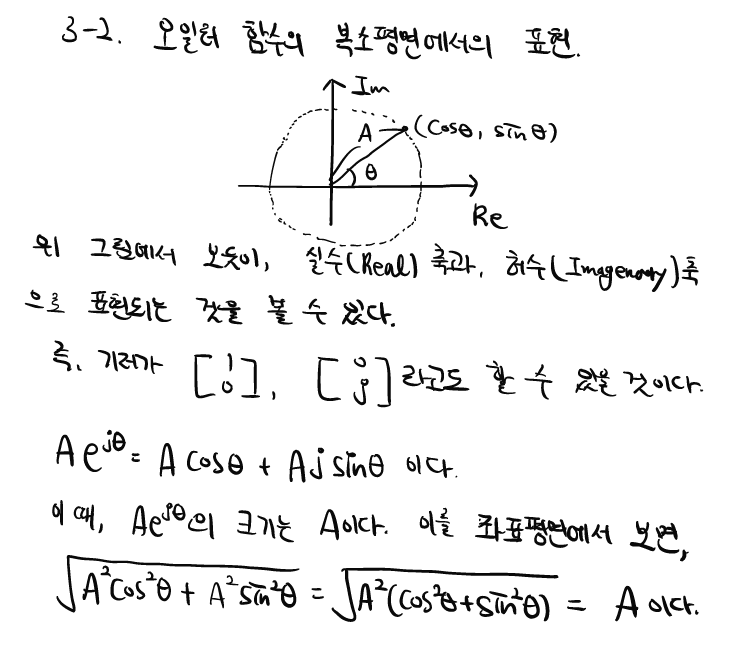 3-2. 오일러 함수의 복소평면에서의 표현.
Im
A (cosθ, sinθ)
θ
Re
위 그림에서 보듯이, 실수(Real) 축과, 허수(Imagenary)축
으로 표현되는 것을 볼 수 있다.
즉, 기저가 [1 0], [0 j] 라고도 할 수 있을 것이다.
Ae^{jθ} = A cosθ + Aj sinθ 이다.
이 때, Ae^{jθ}의 크기는 A이다. 이를 좌표평면에서 보면,
√(A²cos²θ + A²sin²θ) = √(A²(cos²θ+sin²θ)) = A 이다.